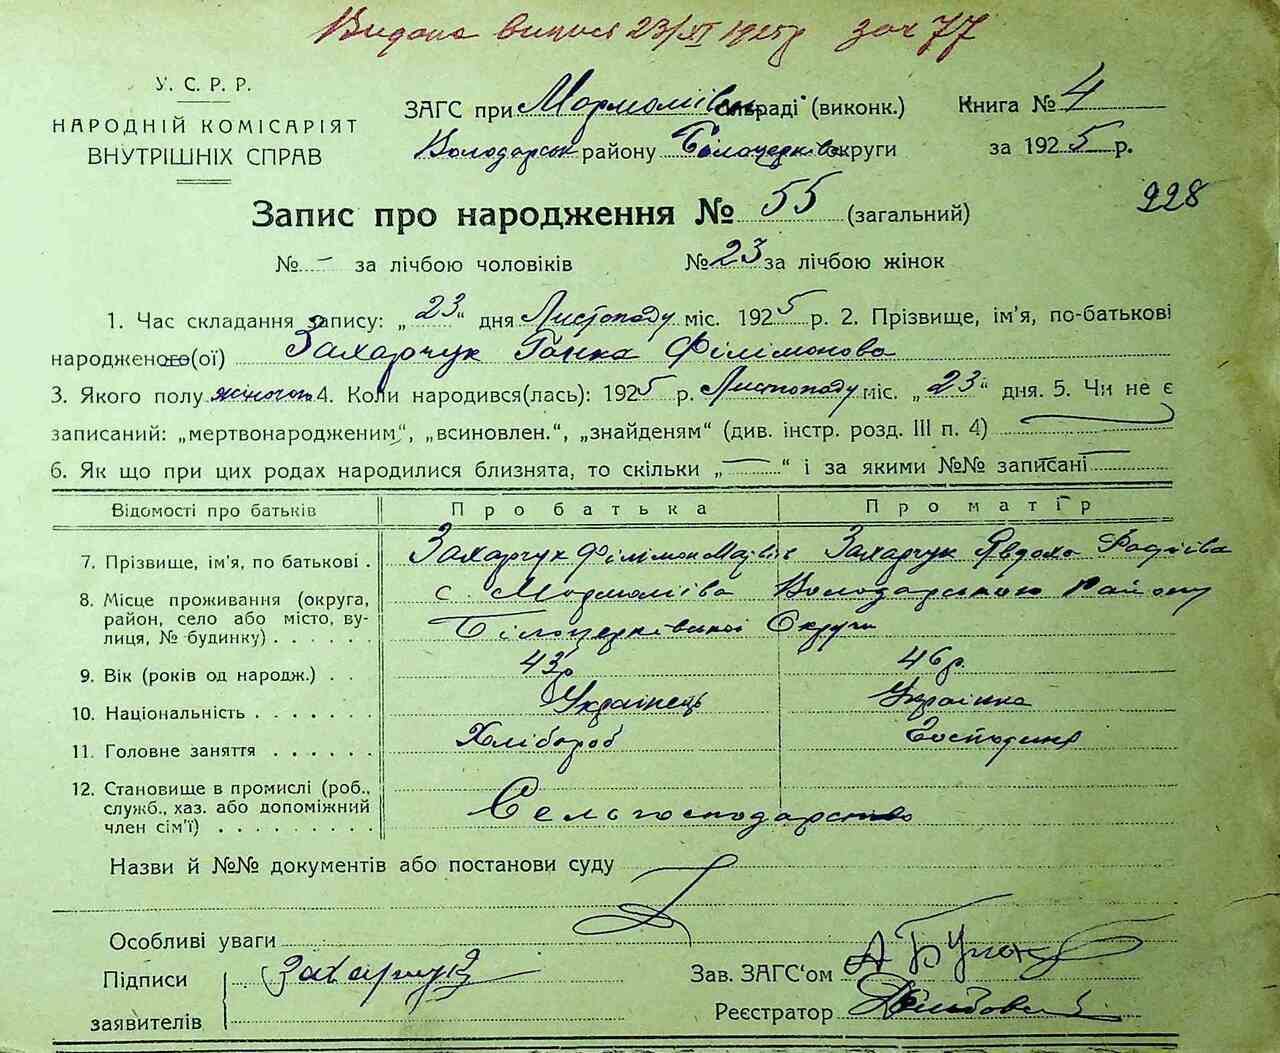 Видана виписъ 23/XI 1925 р. за № 77
У. С. Р. Р.
НАРОДНІЙ КОМІСАРІЯТ
ВНУТРІШНІХ СПРАВ
ЗАГС при Мармоліївськ. сільраді (виконк.) Книга № 4
Володарськ району Білоцерківськ округи за 1925 р.
228
Запис про народження № 55 (загальний)
№ - за лічбою чоловіків № 23 за лічбою жінок
1. Час складання запису: „23“ дня Листопаду міс. 1925 р. 2. Прізвище, ім'я, по-батькові
народженого(ої) Захарчук Ганка Філімонова
3. Якого полу жіночого 4. Коли народився(лась): 1925 р. Листопаду міс. „23“ дня. 5. Чи не є
записаний: „мертвонародженим“, „всиновлен.“, „знайденям“ (див. інстр. розд. III п. 4)
6. Як що при цих родах народилися близнята, то скільки „—“ і за якими №№ записані —
Відомості про батьків Про батька Про матір
7. Прізвище, ім'я, по батькові . Захарчук Філімон Захарчук Явдоха
8. Місце проживання (округа, с. Мармоліївка Володарського району
район, село або місто, ву-
лиця, № будинку) . . . . . . Білоцерківської Округи
9. Вік (років од народж.) . . 43 р. 46 р.
10. Національність . . . . . . . Українець Українка
11. Головне заняття . . . . . . Хлібороб Господиня
12. Становище в промислі (роб.,
служб., хаз. або допоміжний
член сім'ї) . . . . . . . . . Сельгосподарство
Назви й №№ документів або постанови суду
Особливі уваги
Підписи Захарчук Зав. ЗАГС'ом
заявителів Реєстратор